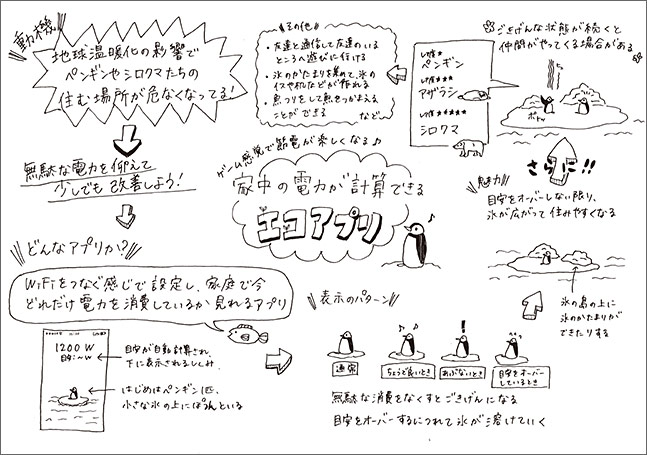 動機
地球温暖化の影響で
ペンギンやシロクマたちの
住む場所が危なくなってる!
無駄な電力を抑えて
少しでも改善しよう!
どんなアプリか?
WiFiをつなぐ感じで設定し、家庭で今
どれだけ電力を消費しているか見れるアプリ
1200W
目安:~W
目安が自動計算され、
下に表示されるしくみ
はじめはペンギン1匹、
小さな氷の上にぽつんといる
ゲーム感覚で節電が楽しくなる♪
家中の電力が計算できる
エコアプリ
表示のパターン
通常
ちょうど良いとき
あぶないとき
目安をオーバー
しているとき
無駄な消費をなくすとごきげんになる
目安をオーバーするにつれて氷が溶けていく
魅力
目安をオーバーしない限り、
氷が広がって住みやすくなる
氷の島の上に
氷のかたまりが
できたりする
さらに!!
ごきげんな状態が続くと
仲間がやってくる場合がある
ポトッ
レア度★
ペンギン
レア度★★
アザラシ
レア度★★★★
シロクマ
その他
・友達と通信して友達のいる
ところへ遊びに行ける
・氷のかたまりを集めて、氷の
イスや机などが作れる
・魚つりをして魚をつかまえる
ことができる
など